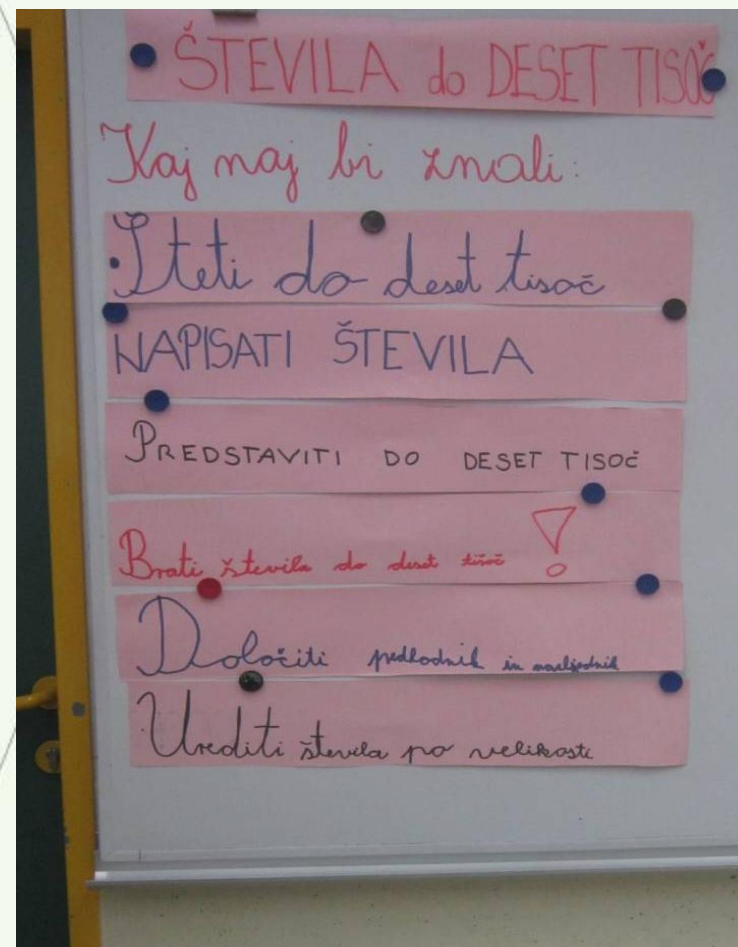 ŠTEVILA do DESET TISOČ
Kaj naj bi znali:
• Šteti do deset tisoč
NAPISATI ŠTEVILA
PREDSTAVITI DO DESET TISOČ
Brati števila do deset tisoč !
Določiti predhodnik in naslednik
Urediti števila po velikosti